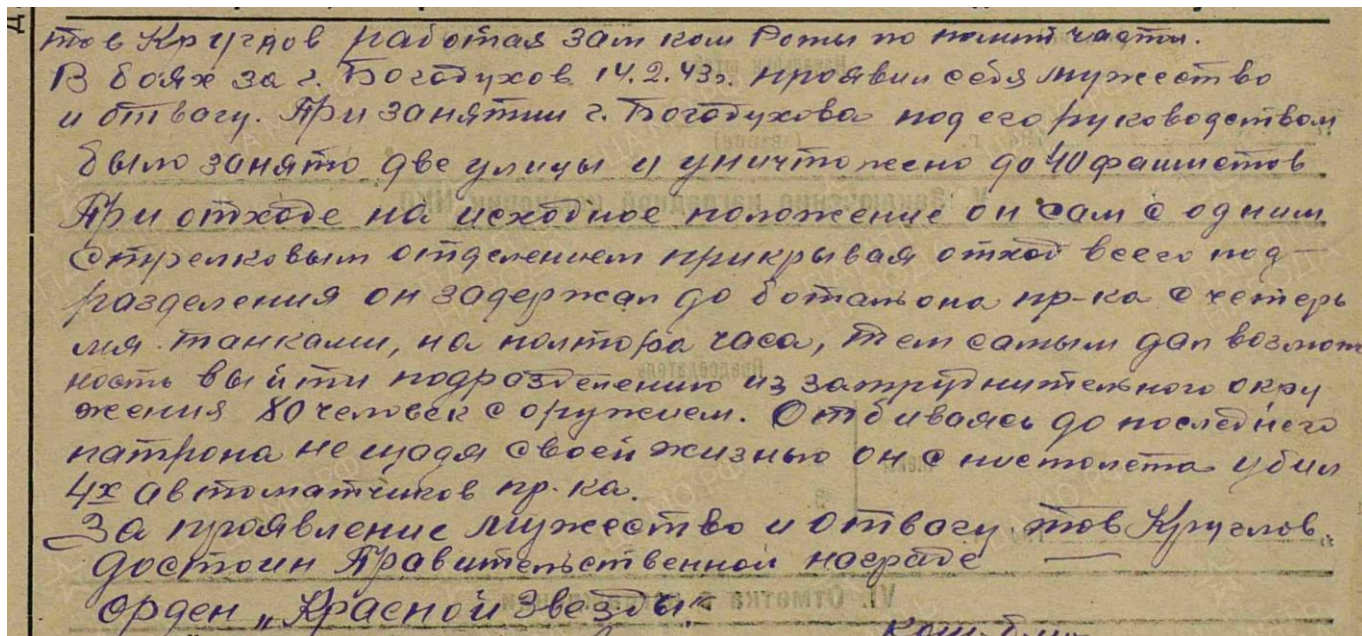 тов Круглов работая зам ком Роты по полит части.
В боях за г. Богодухов 14.2.43г. проявил себя мужество
и отвагу. При занятии г. Богодухова под его руководством
было занято две улицы и уничтожено до 40 фашистов
При отходе на исходное положение он сам с одним
стрелковым отделением прикрывая отход всего под-
разделения он задержал до ботальона пр-ка с четерь
мя танками, на полтора часа, тем самым дал возмож
ность выйти подразделению из затруднительного окру
жения 80 человек с оружием. Отбиваясь до последнего
патрона не щадя своей жизнью он с пистолета убил
4х автоматчиков пр-ка.
За проявление мужество и отвагу тов Круглов
достоин Правительственной награде —
орден „Красной Звезды"
VI. Отметка о